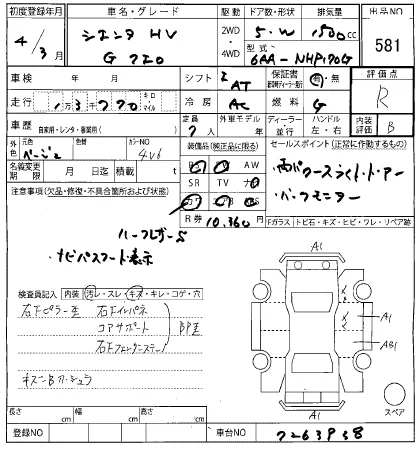 初度登録年月 車名・グレード 駆動 ドア数・形状 排気量 出品NO
4/3月 シエンタ HV 2WD・4WD 5・W 1500cc 581
G 型式 6AA-NHP170G
車検 年 月 シフト I AT 保証書 有・無 評価点 R
走行 1 3 7 20 キロ マイル 冷房 AC 燃料 G
車歴 自家用・レンタ・事業用( ) 定員 7人 外車モデル 年 ディーラー 並行 ハンドル 左・右 内装 B
外色 元色 ベージュ カラーNO 4V6 装備品(純正品に限る) セールスポイント(正常に作動するもの)
名義変更期限 月 日迄 積載 t AW 両パワースライドドアー
注意事項(欠品・修復・不具合箇所および状態) SR TV ナビ バックモニター
R券 10,360円 Fガラス トビ石・キズ・ヒビ・ワレ・リペア跡
ハーフレザーS
ナビパスコード表示
A1
検査員記入 内装 汚レ・スレ・キズ・キレ・コゲ・穴
右Fピラー歪 右Fインパネ
コアサポート
A1
AB1
A1
スペア
長さ cm 幅 cm 高さ cm
登録NO 車台NO 7263958